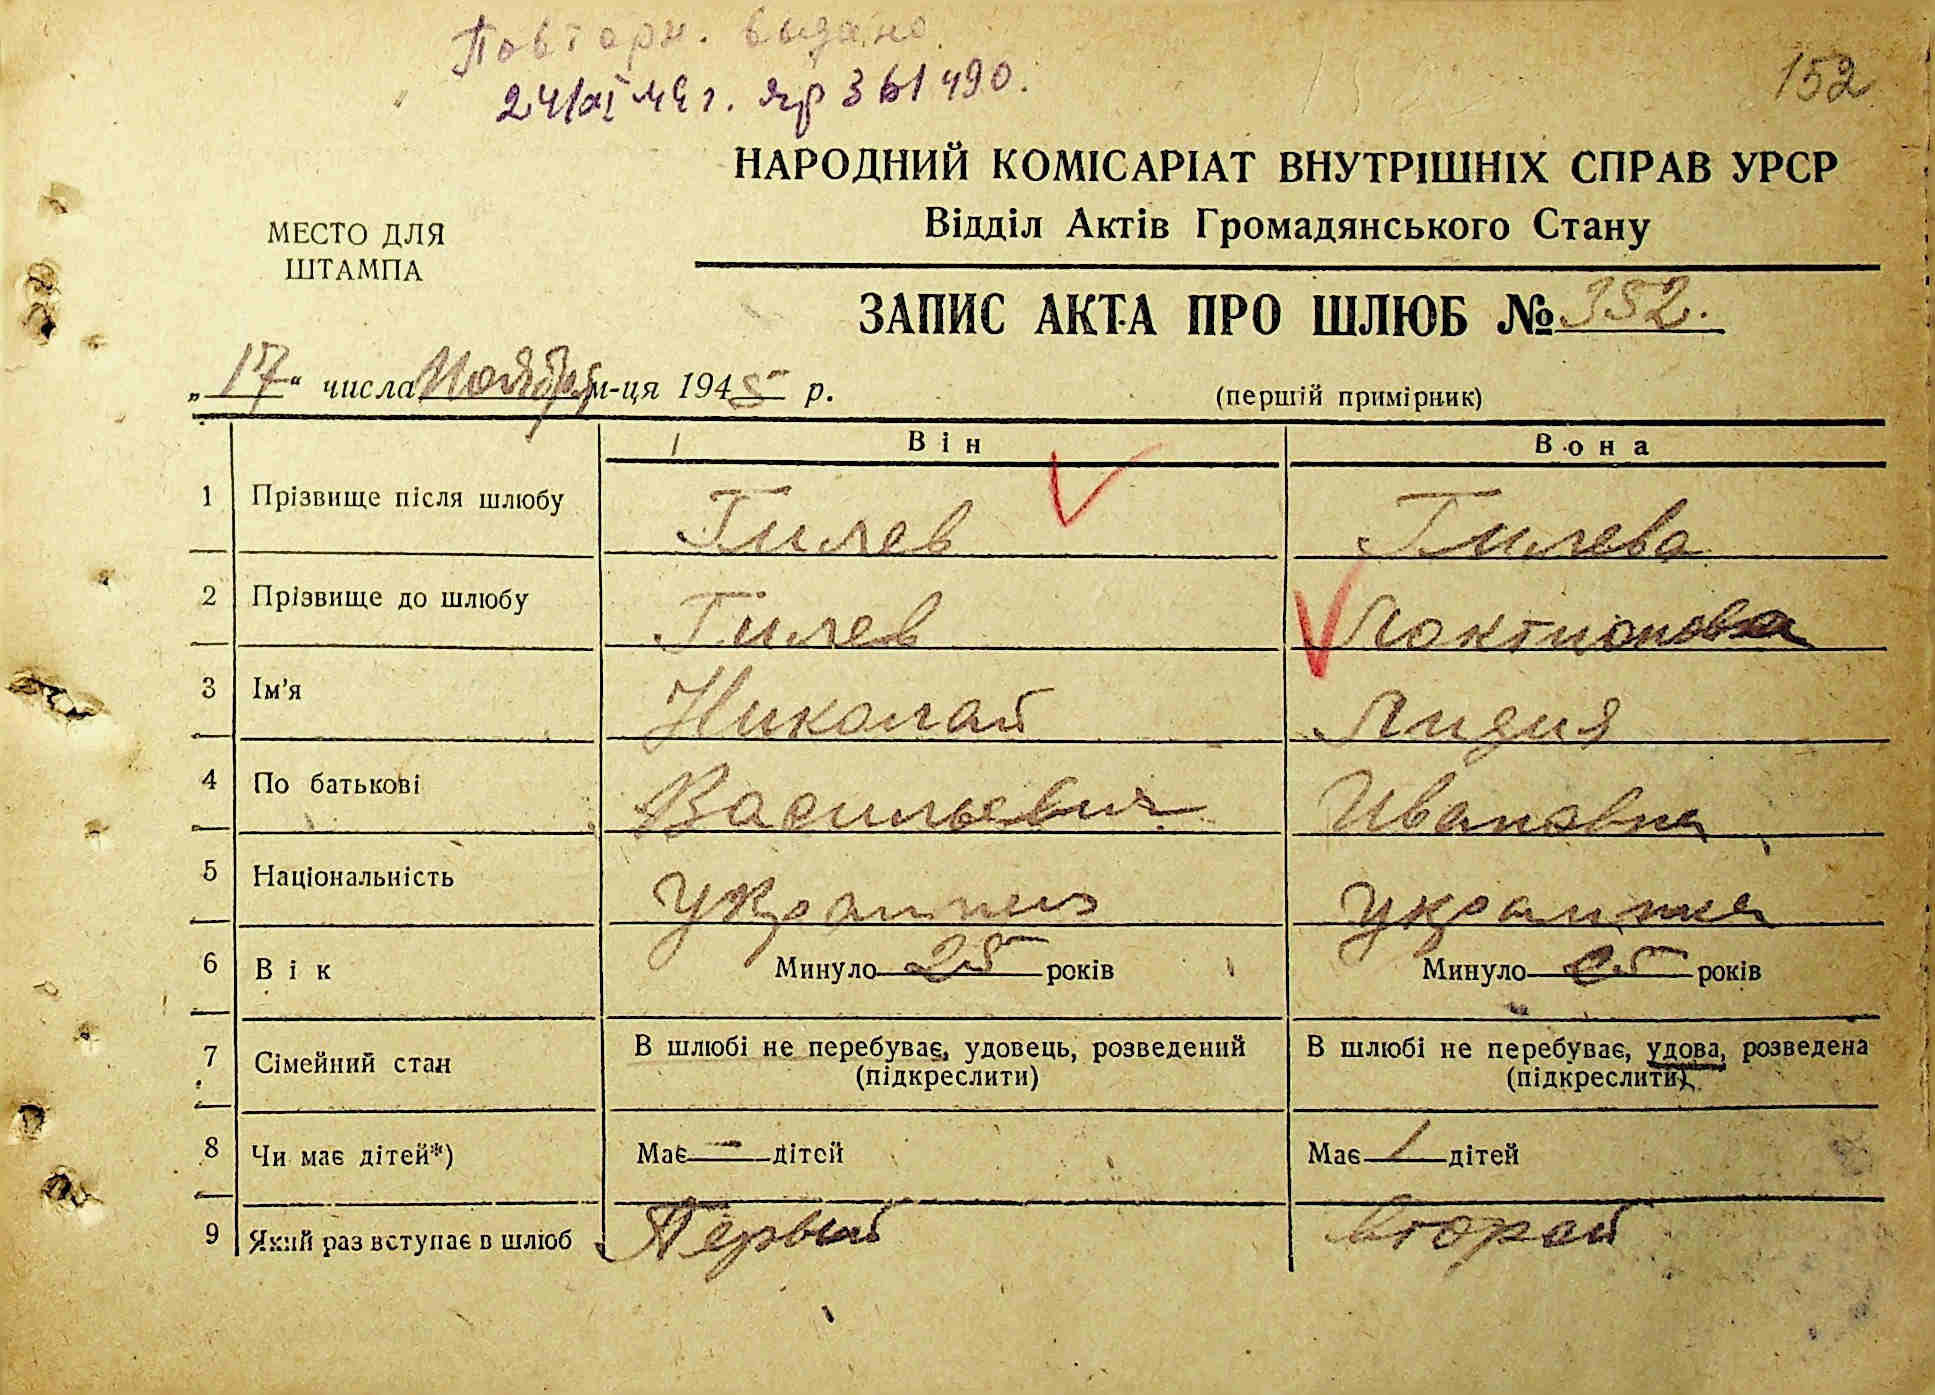 Повторн. выдано
152
НАРОДНИЙ КОМІСАРІАТ ВНУТРІШНІХ СПРАВ УРСР
Відділ Актів Громадянського Стану
МЕСТО ДЛЯ
ШТАМПА
ЗАПИС АКТА ПРО ШЛЮБ № 352.
„17“ числа Ноября м-ця 1945 р.
(першій примірник)
Він Вона
1 Прізвище після шлюбу Гилев Гилева
2 Прізвище до шлюбу Гилев Локтионова
3 Ім'я Николай Лидия
4 По батькові Васильевич Ивановна
5 Національність Украинец Украинка
6 Вік Минуло 25 років Минуло 25 років
7 Сімейний стан В шлюбі не перебуває, удовець, розведений (підкреслити) В шлюбі не перебуває, удова, розведена (підкреслити)
8 Чи має дітей*) Має — дітей Має 1 дітей
9 Який раз вступає в шлюб Первый второй